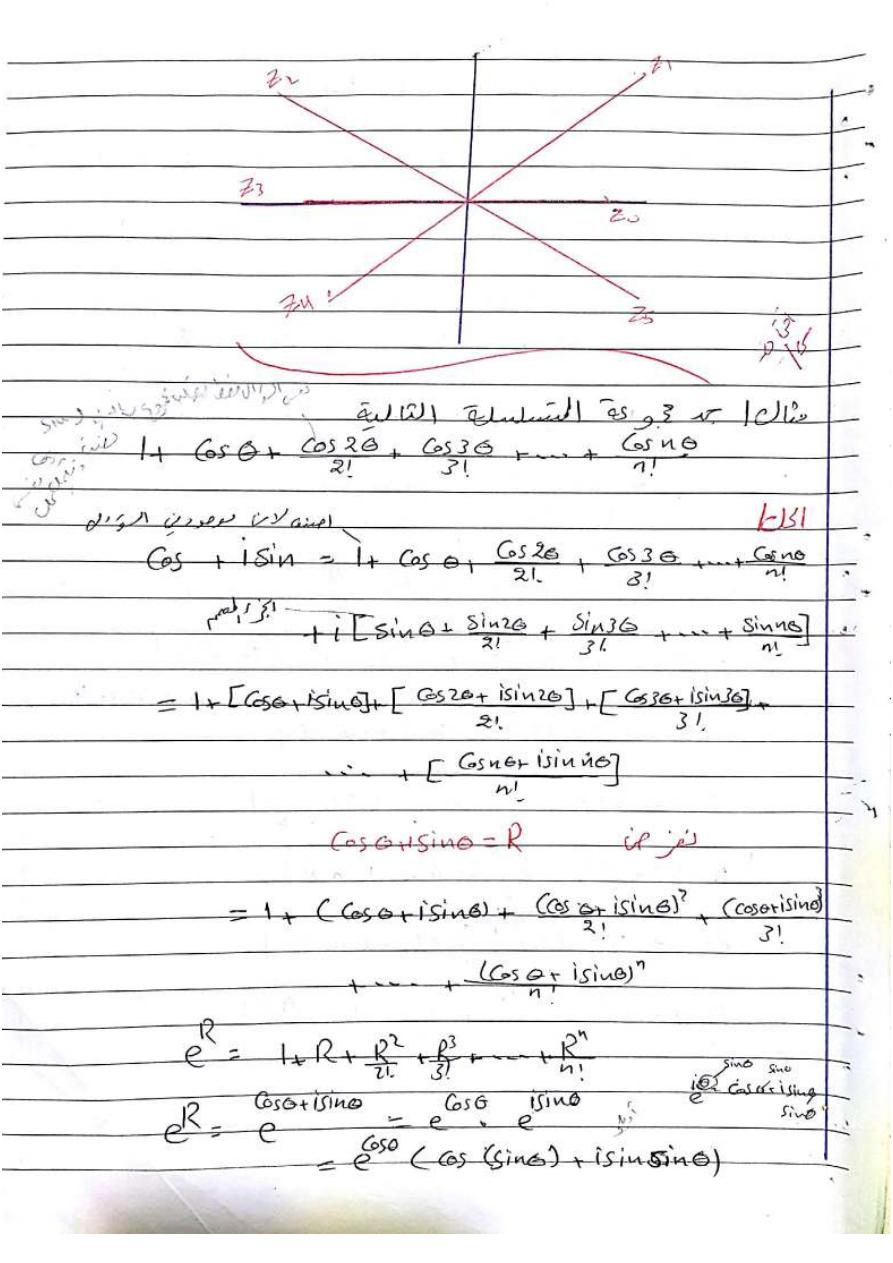 Z2 Z1
Z3 Z0
Z4 Z5
مثال / جد مجموعة المتسلسلة التالية
1 + Cosθ + Cos2θ/2! + Cos3θ/3! + .... + Cosnθ/n!
الحل /
Cos + i Sin = 1 + Cosθ + Cos2θ/2! + Cos3θ/3! + .... + Cosnθ/n!
+ i [Sinθ + Sin2θ/2! + Sin3θ/3! + .... + Sinnθ/n!]
= 1 + [Cosθ + iSinθ] + [Cos2θ + iSin2θ/2!] + [Cos3θ + iSin3θ/3!] +
.... + [Cosnθ + iSinnθ/n!]
Cosθ + iSinθ = R نفرض
= 1 + (Cosθ + iSinθ) + (Cosθ + iSinθ)²/2! + (Cosθ + iSinθ)³/3!
+ .... + (Cosθ + iSinθ)ⁿ/n!
e^R = 1 + R + R²/2! + R³/3! + .... + Rⁿ/n!
e^R = e^(Cosθ + iSinθ) = e^(Cosθ) . e^(iSinθ)
= e^(Cosθ) (Cos(Sinθ) + iSinSinθ)